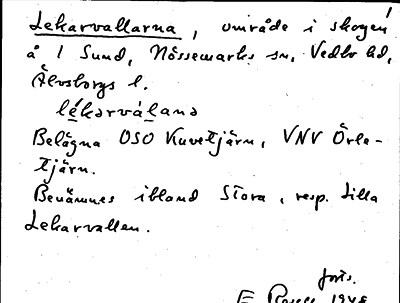 Lekarvallarna, område i skogen
å 1 Sund, Nössemarks sn, Vedbo hd,
Älvsborgs l.
lékarvàlana
Belägna OSO Kuvetjärn, VNV Örla-
tjärn.
Benämnes ibland Stora, resp. Lilla
Lekarvallen.
forts.
E 1948